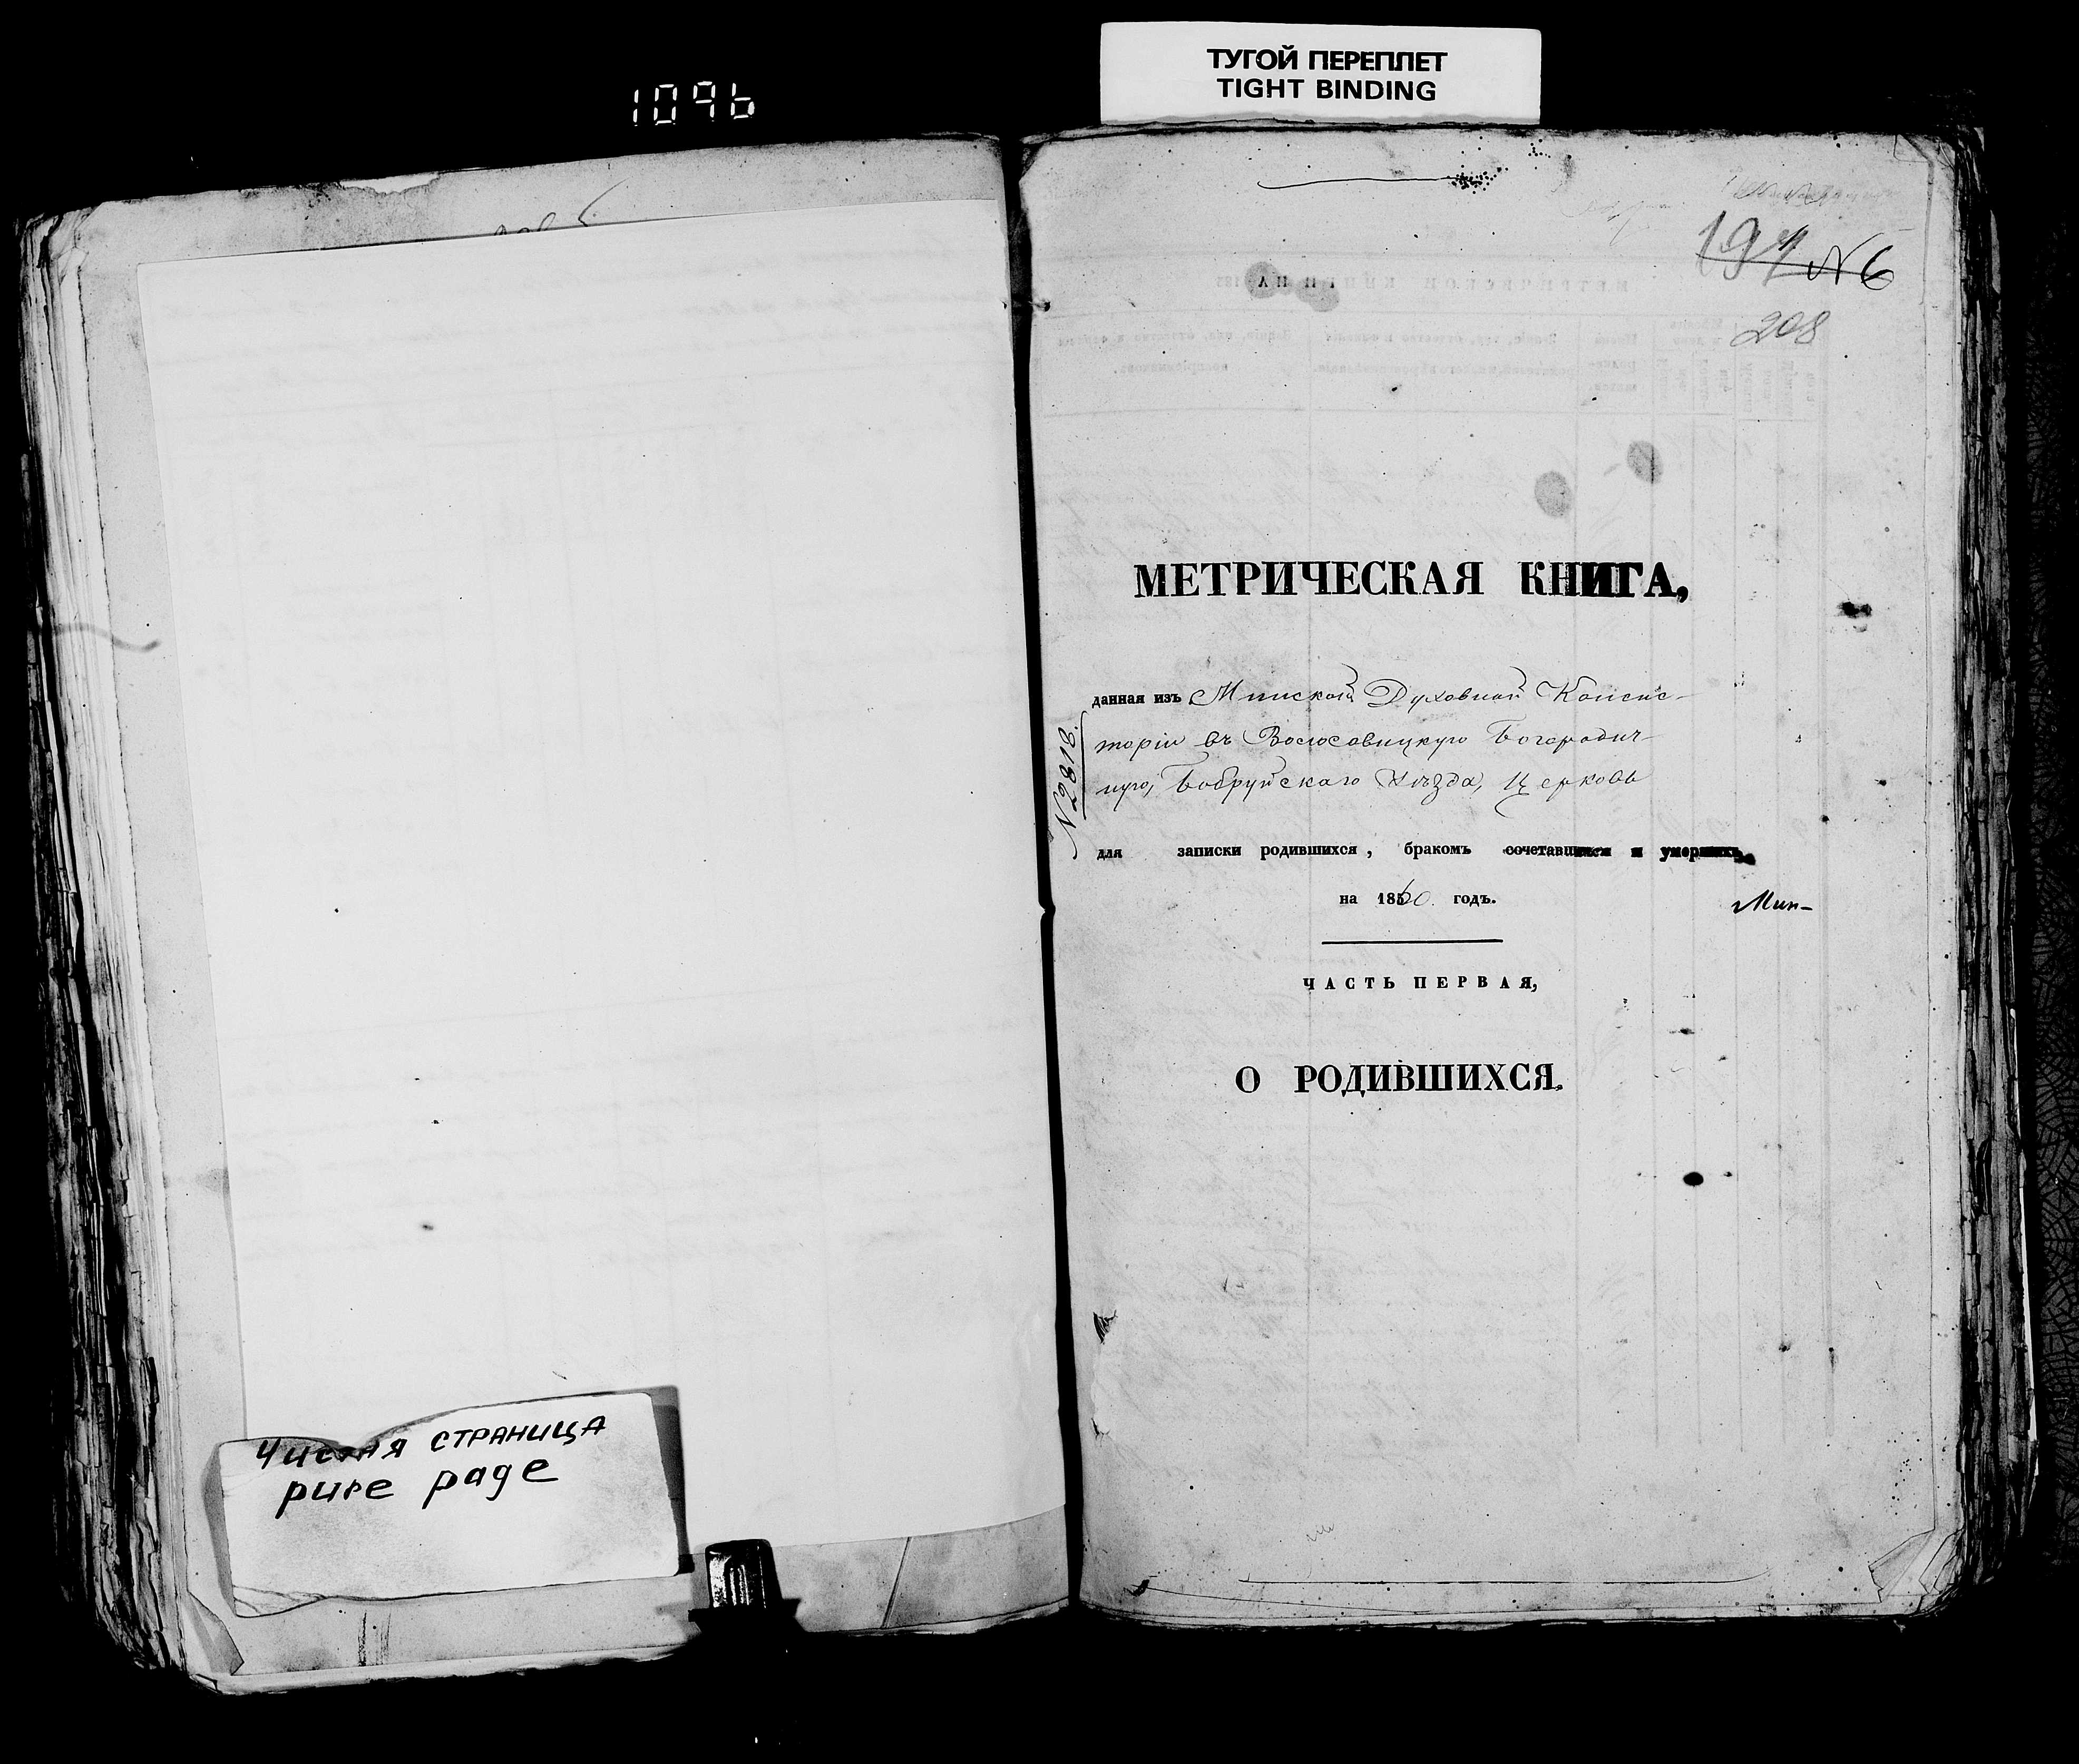 1096
ТУГОЙ ПЕРЕПЛЕТ
TIGHT BINDING
197 N6
208
МЕТРИЧЕСКАЯ КНИГА,
данная изъ Минской Духовной Консис-
торіи въ Волосовицкую Богородич-
ную, Бобруйскаго Уѣзда, Церковь
N 2818.
для записки родившихся, бракомъ сочетавшихся и умершихъ
на 1860. годъ.
Мин-
ЧАСТЬ ПЕРВАЯ,
О РОДИВШИХСЯ.
Чистая страница
pure page